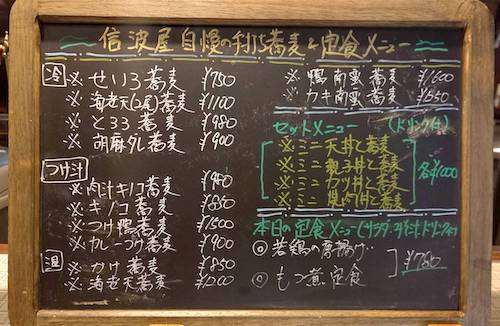 信波屋自慢の手打ち蕎麦と定食メニュー
冷
※せいろ蕎麦 ¥750
※海老天(2尾)蕎麦 ¥1100
※とろろ蕎麦 ¥980
※胡麻ダレ蕎麦 ¥900
つけ汁
※肉汁キノコ蕎麦 ¥950
※キノコ蕎麦 ¥850
※つけ鴨蕎麦 ¥1500
※カレーつけ蕎麦 ¥900
温
※かけ蕎麦 ¥850
※海老天蕎麦 ¥1200
※鴨南蛮蕎麦 ¥1600
※カキ南蛮蕎麦
セットメニュー (ドリンク付)
※ミニ天丼と蕎麦
※ミニ親子丼と蕎麦
※ミニカツ丼と蕎麦
※ミニ焼肉丼と蕎麦
各¥1000
本日の定食メニュー(サラダ・みそ汁・ドリンク付)
◎若鶏の唐揚げ
◎もつ煮定食
¥750